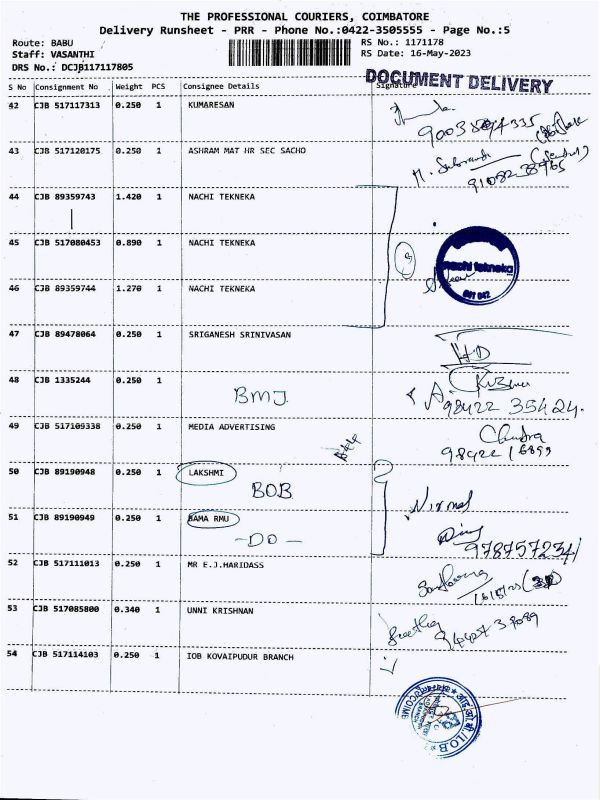 THE PROFESSIONAL COURIERS, COIMBATORE
Delivery Runsheet - PRR - Phone No.:0422-3505555 - Page No.:5
Route: BABU
RS No.: 1171178
Staff: VASANTHI
RS Date: 16-May-2023
DRS No.: DCJB117117805
DOCUMENT DELIVERY
S No Consignment No Weight PCS Consignee Details Signature
42 CJB 517117313 0.250 1 KUMARESAN
43 CJB 517120175 0.250 1 ASHRAM MAT HR SEC SACHO
44 CJB 89359743 1.420 1 NACHI TEKNEKA
45 CJB 517080453 0.890 1 NACHI TEKNEKA
nachi tekneka
46 CJB 89359744 1.270 1 NACHI TEKNEKA
47 CJB 89478064 0.250 1 SRIGANESH SRINIVASAN
48 CJB 1335244 0.250 1
BMJ
98422 35424.
49 CJB 517109338 0.250 1 MEDIA ADVERTISING
Chandra
98422 16899
50 CJB 89190948 0.250 1 LAKSHMI
BOB
Nirmal
51 CJB 89190949 0.250 1 BAMA RMU
-DO-
52 CJB 517111013 0.250 1 MR E.J.HARIDASS
53 CJB 517085800 0.340 1 UNNI KRISHNAN
54 CJB 517114103 0.250 1 IOB KOVAIPUDUR BRANCH